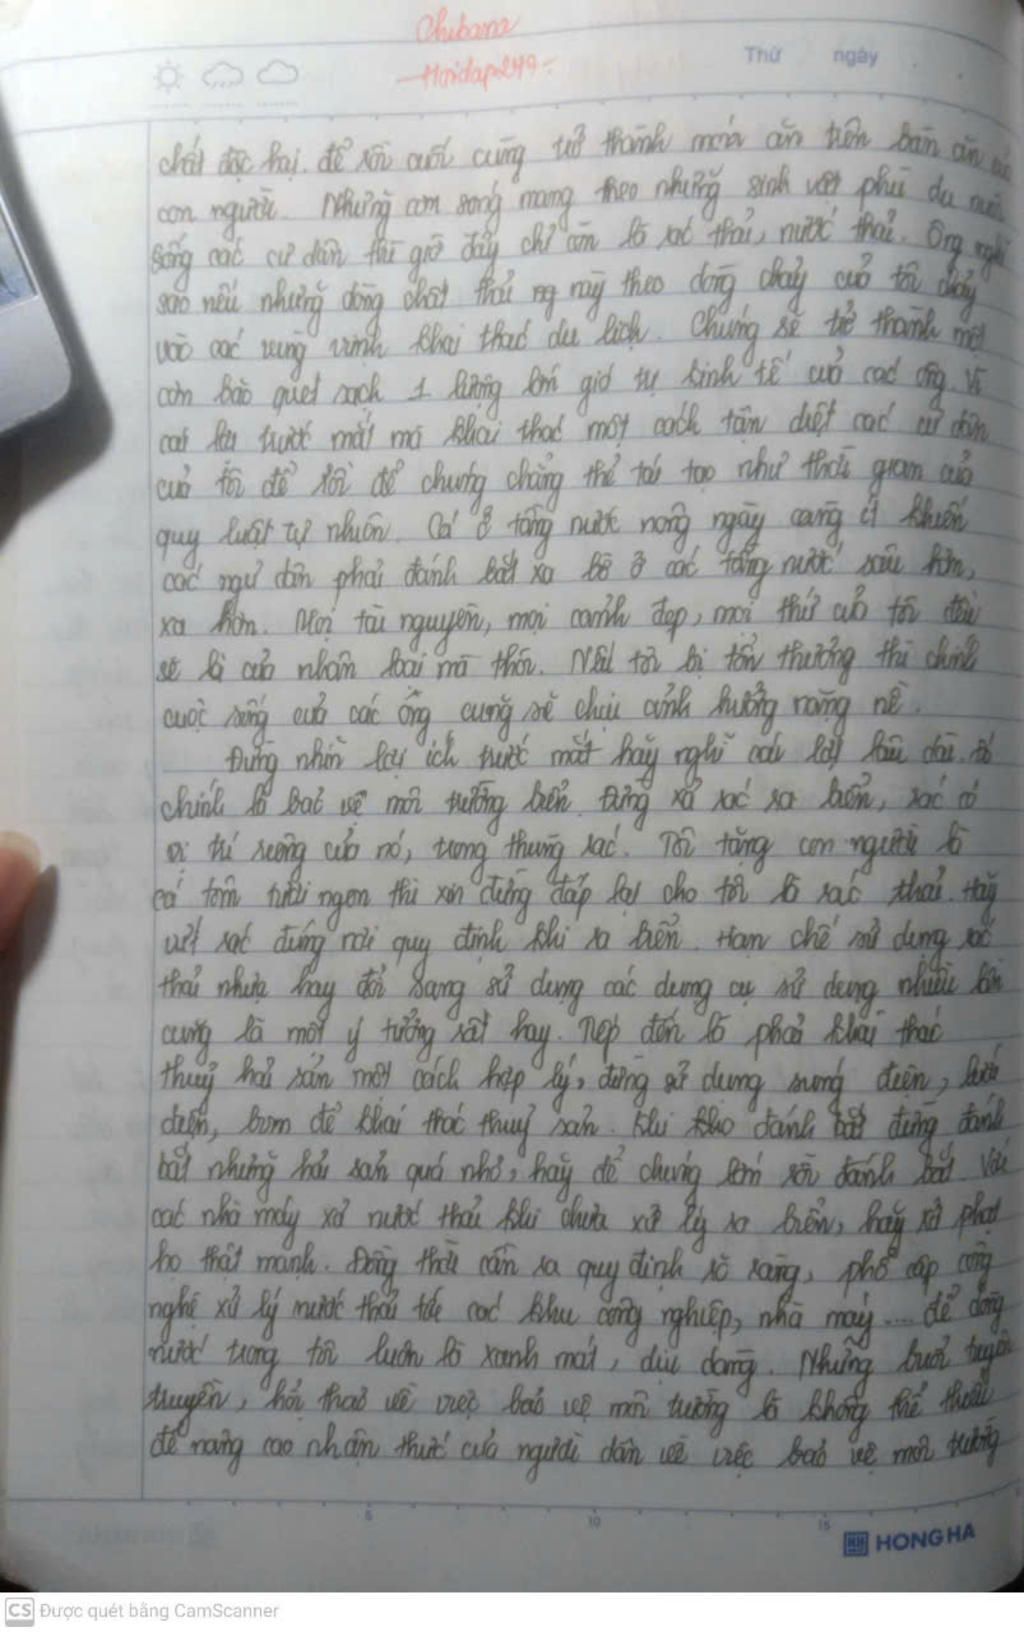 Chibana
Thứ ngày
-Hoidap249-
chất độc hại. để rồi cuối cùng trở thành món ăn trên bàn ăn của
con người. Những cơn sóng mang theo những sinh vật phù du nuôi
sống các cư dân thì giờ đây chỉ còn là rác thải, nước thải. Ông nghĩ
sao nếu những dòng chất thải này theo dòng chảy của tôi chảy
vào các vùng vịnh khai thác du lịch. Chúng sẽ trở thành một
cơn bão quét sạch 1 lượng lớn giá trị kinh tế của các ông. Vì
cái lợi trước mắt mà khai thác một cách tận diệt các cư dân
của tôi để rồi để chúng chẳng thể tái tạo như thời gian của
quy luật tự nhiên. Cá ở tầng nước nông ngày càng ít khiến
các ngư dân phải đánh bắt xa bờ ở các tầng nước sâu hơn,
xa hơn. Mọi tài nguyên, mọi cảnh đẹp, mọi thứ của tôi đều
sẽ là của nhân loại mà thôi. Nếu tôi bị tổn thương thì chính
cuộc sống của các ông cũng sẽ chịu ảnh hưởng nặng nề.
Đừng nhìn lợi ích trước mắt hãy nghĩ cái lợi lâu dài. Đó
chính là bảo vệ môi trường biển. Đừng xả rác ra biển, rác có
vị trí riêng của nó, trong thùng rác. Tôi tặng con người là
cá tôm tươi ngon thì xin đừng đáp lại cho tôi là rác thải. Hãy
vứt rác đúng nơi quy định khi ra biển. Hạn chế sử dụng rác
thải nhựa hay đổi sang sử dụng các dụng cụ sử dụng nhiều lần
cũng là một ý tưởng rất hay. Tiếp đến là phải khai thác
thuỷ hải sản một cách hợp lý, đừng sử dụng súng điện, lưới
điện, bom để khai thác thuỷ sản. Khi đánh bắt đừng đánh
bắt những hải sản quá nhỏ, hãy để chúng lớn rồi đánh bắt. Với
các nhà máy xả nước thải khi chưa xử lý ra biển, hãy xử phạt
họ thật mạnh. Đồng thời cần ra quy định rõ ràng, phổ cập công
nghệ xử lý nước thải tới các khu công nghiệp, nhà máy.... để dòng
nước trong tôi luôn là xanh mát, dịu dàng. Những buổi tuyên
truyền, hội thảo về việc bảo vệ môi trường là không thể thiếu
để nâng cao nhận thức của người dân về việc bảo vệ môi trường
5 10 15
HONG HA
CS Được quét bằng CamScanner